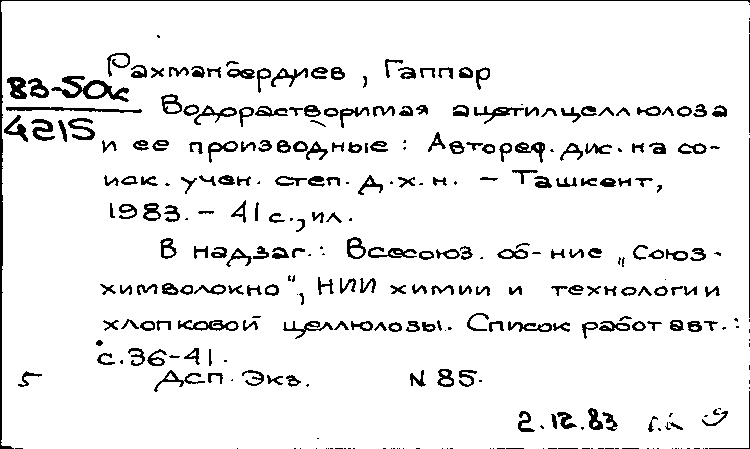 Рахманбердиев, Гаппар
83-50к
4215
Водорастворимая ацетилцеллюлоза
и ее производные: Автореф. дис. на со-
иск. учен. степ. д.х.н. – Ташкент,
1983. – 41 с., ил.
В надзаг.: Всесоюз. об-ние „Союз-
химволокно", НИИ химии и технологии
хлопковой целлюлозы. Список работ авт.:
с. 36-41.
5 ДСП. Экз. N 85.
2.12.83